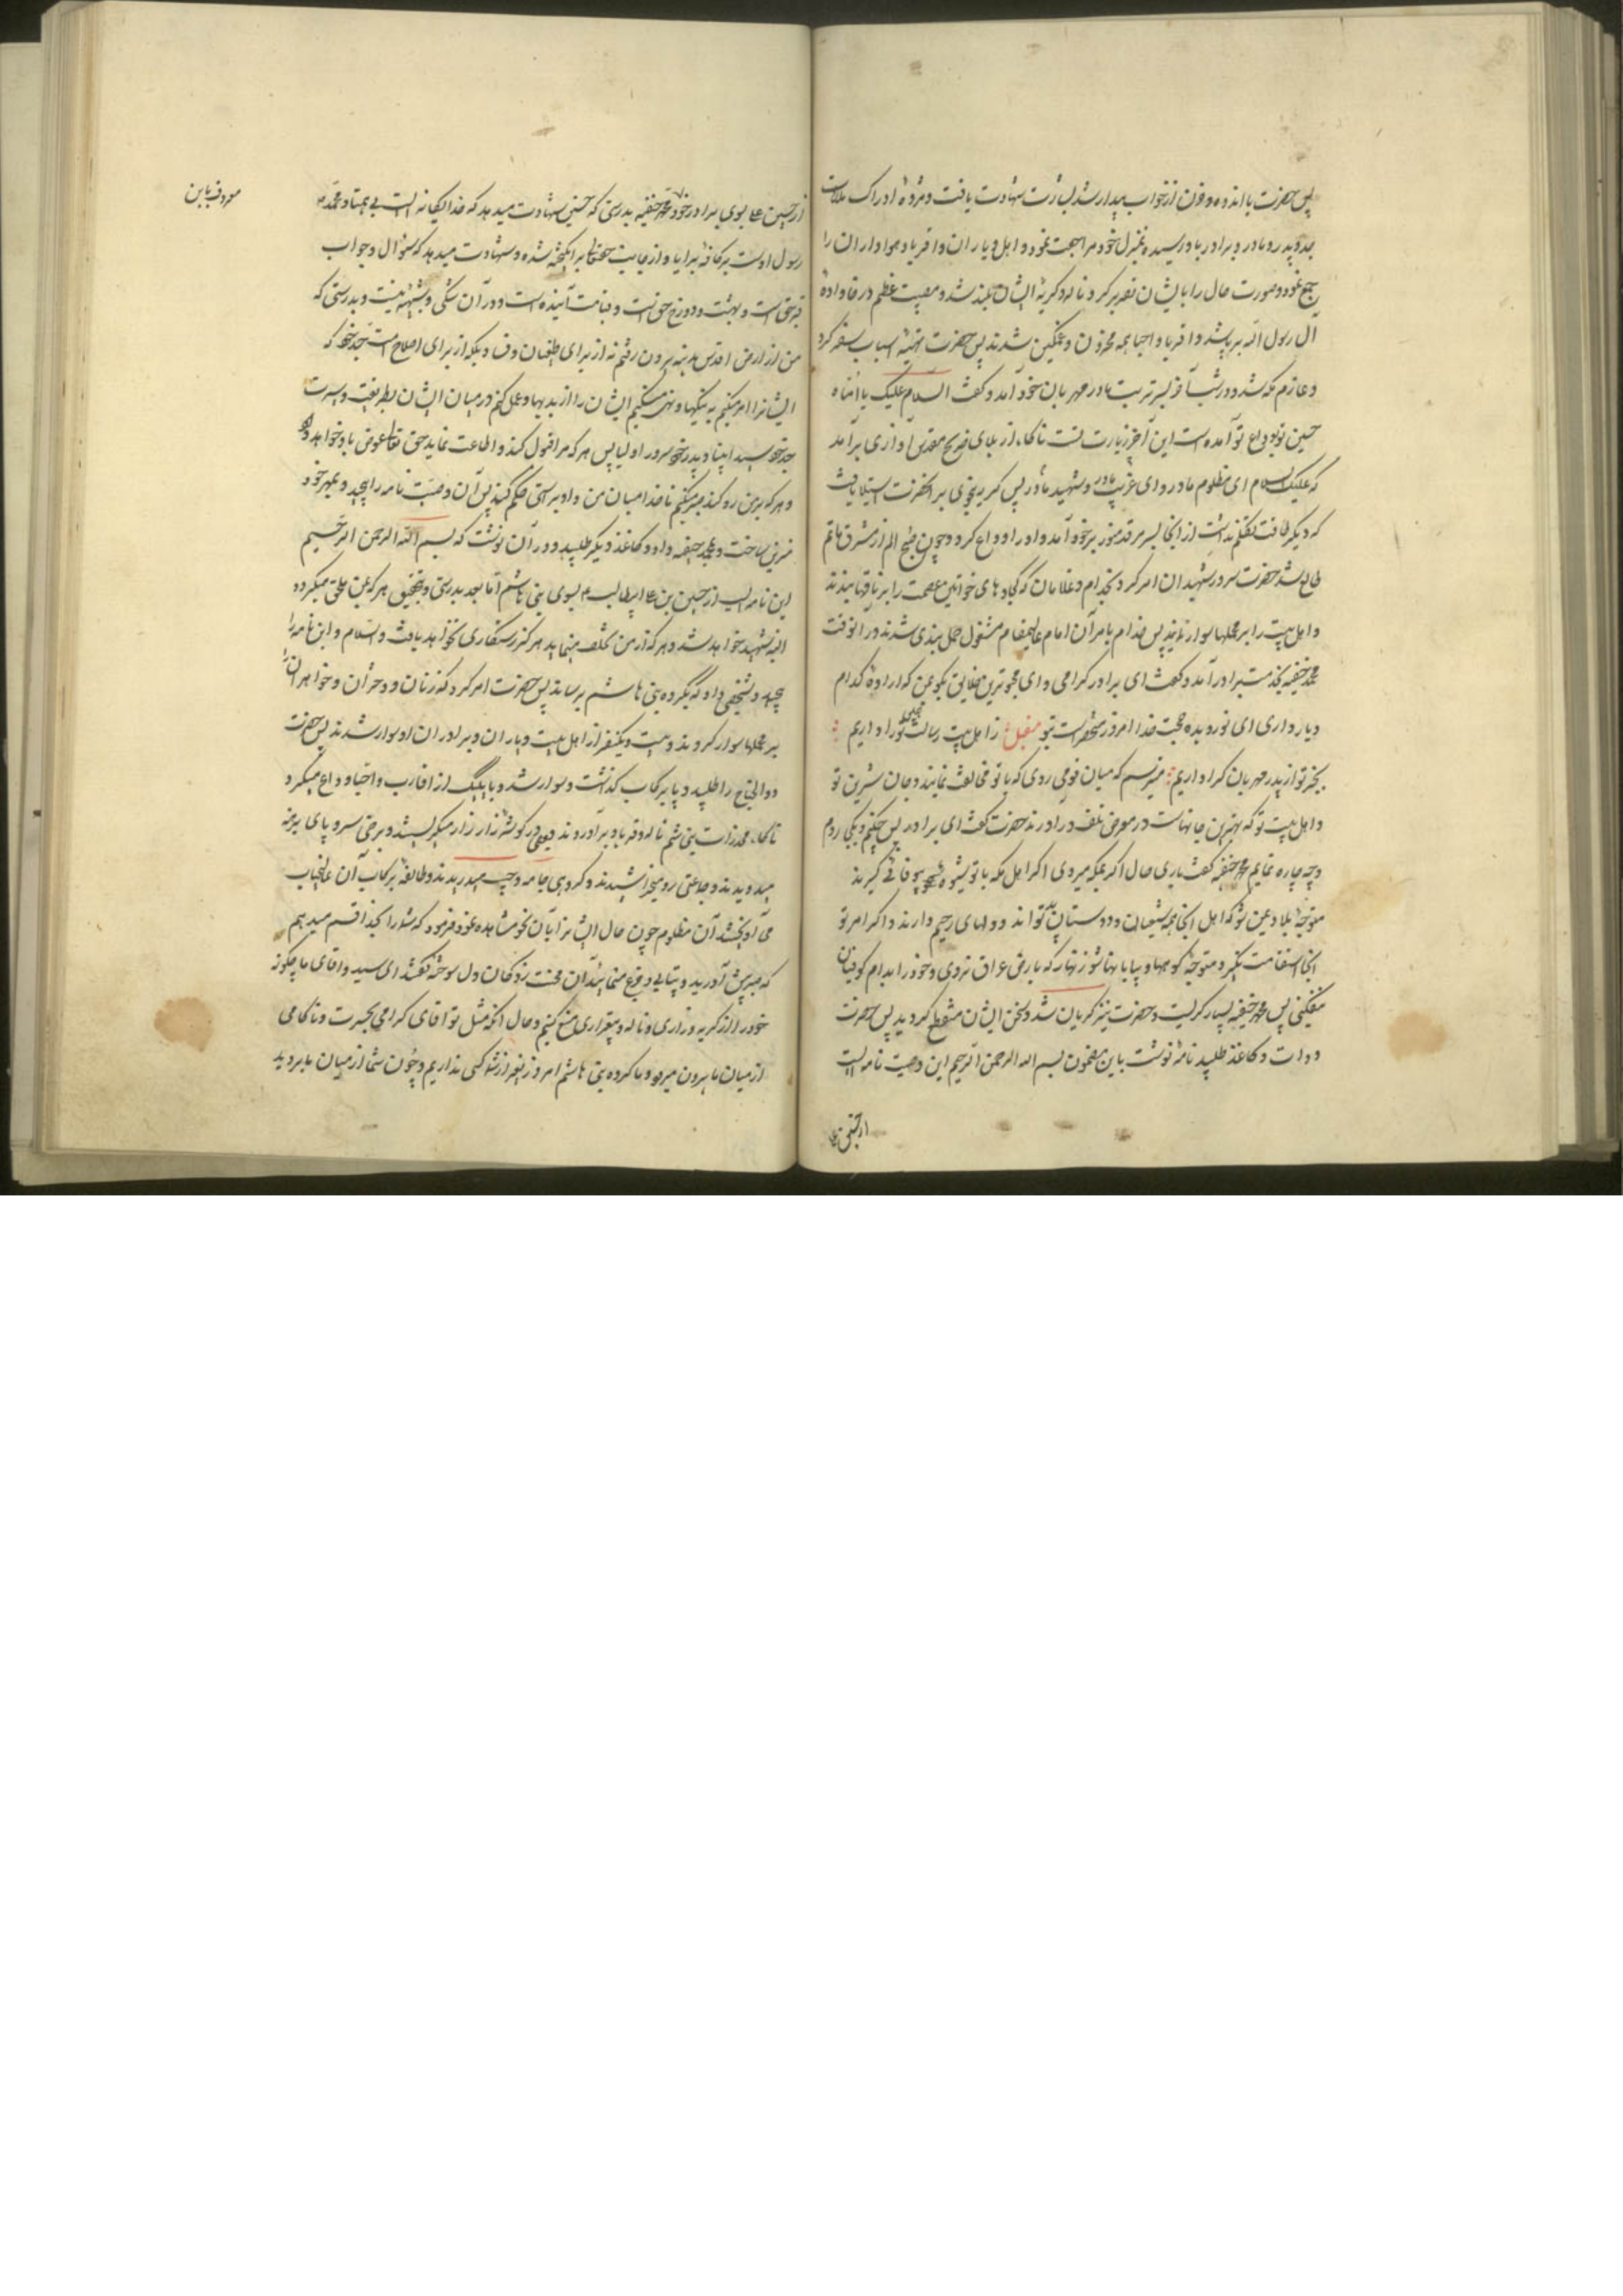 پس حضرت با اندوه و فزون از خواب بیدار شد بشارت شهادت یافت و مژدهٔ ادراک ملاقات
جد و پدر و مادر و برادر باو رسیده بمنزل خود مراجعت نمود و اهل و یاران و اقربا و هواداران را
جمع نمود و صورت حال را بایشان تقریر کرد ناله و گریهٔ ایشان بلند شد و مصیبت عظیم در خانوادهٔ
آل رسول الله برپا شد و اقربا و احبا همه محزون و غمگین شدند پس حضرت تهیهٔ اسباب سفر کرد
و عازم مکه شد و در شب آخر بسر تربت مادر مهربان خود آمد و گفت السلام علیک یا اماه
حسین تو بوداع تو آمده است این آخر زیارت تست ناگاه از بلای ضریح مقدس آوازی برآمد
که علیک السلام ای مظلوم مادر و ای غریب مادر و شهید مادر پس گریه بر آنحضرت استیلا یافت
که دیگر طاقت تکلم نداشت از آنجا بسر مرقد منور برادر خود آمد و او را وداع کرد و چون صبح الم از مشرق ماتم
طالع شد حضرت سرور شهیدان امر کرد بخدام و غلامان که کجاوه های خواتین عصمت را بر ناقها بندند
و اهل بیت را بر محملها سوار نمایند پس خدام بامر آن امام عالیمقام مشغول حمل بندی شدند در آنوقت
محمد حنفیه بخدمت برادر آمد و گفت ای برادر گرامی و ای محبوبترین خلایق بگو بمن که ارادهٔ کدام
دیار داری ای نور دیده حجت خدا امروز منحصر است بتو ز اهل بیت رسالت همین تو را داریم
بجز تو از پدر مهربان کرا داریم میترسم که میان قومی روی که با تو مخالفت نمایند و جان شیرین تو
و اهل بیت تو که بهترین جانهاست در معرض تلف درآورند حضرت گفت ای برادر پس چکنم و بکجا روم
و چه چاره نمایم محمد حنفیه گفت باری حال اگر بمکه میروی اگر اهل مکه با تو شیوه بیوفائی گیرند
متوجهٔ بلاد یمن شو که اهل آنجا همه شیعیان و دوستان پدر تو اند و دلهای رحیم دارند و اگر امر تو
آنجا استقامت نگیرد متوجهٔ کوهها و بیابانها شو زنهار که بارض عراق نروی و خود را بدام کوفیان
میفکنی پس محمد حنفیه بسیار گریست و حضرت نیز گریان شد و سخن ایشان منقطع گردید پس حضرت
دوات و کاغذ طلبید نامهٔ نوشت باین مضمون بسم الله الرحمن الرحیم این وصیت نامه ایست
از حسین علی
از حسین علی بسوی برادر خود محمد حنفیه بدرستی که حسین شهادت میدهد که خدا یگانه ایست بی همتا و محمد
رسول اوست بر کافهٔ برایا و از جانب حقتعالی برانگیخته شده و شهادت میدهد که سؤال و جواب
قبر حق است و بهشت و دوزخ حق است و قیامت آینده است و در آن شکی و شبههٔ نیست و بدرستی که
من از ارض اقدس مدینه بیرون رفتم نه از برای طغیان و فساد بلکه از برای اصلاح امت جد خود که
ایشانرا امر میکنم به نیکیها و نهی میکنم ایشان را از بدیها و عمل کنم در میان ایشان بطریقت و سیرت
جد خود سید انبیا و پدر خود سرور اولیا پس هر که مرا قبول کند و اطاعت نماید حق تعالی عوض باو خواهد داد
و هر که بر من رد کند صبر میکنم تا خدا میان من و او براستی حکم کند پس آن وصیت نامه را پیچید و بمهر خود
مزین ساخت و بمحمد حنفیه داد و کاغذ دیگر طلبید و در آن نوشت که بسم الله الرحمن الرحیم
این نامه ایست از حسین بن علی ابیطالب بسوی بنی هاشم اما بعد بدرستی و تحقیق هر که بمن ملحق میگردد
البته شهید خواهد شد و هر که از من تخلف مینماید هرگز رستگاری نخواهد یافت والسلام و این نامه را
پیچید و بشخصی داد که بگروه بنی هاشم برساند پس حضرت امر کرد که زنان و دختران و خواهران را
بر محملها سوار کردند و بیست و یکنفر از اهل بیت و یاران و برادران او سوار شدند پس حضرت
ذوالجناح را طلبید و پا بر رکاب گذاشت و سوار شد و با یک یک از اقارب و احبا وداع میکرد
ناگاه مخدرات بنی هاشم ناله و فریاد برآوردند بعضی در گوشه زار زار میگریستند و برخی سر و پای برهنه
میدویدند و جماعتی رو میخراشیدند و گروهی جامه و جیب میدریدند و طائفهٔ بر رکاب آن عالیجناب
می آویختند آن مظلوم چون حال ایشانرا بآن نحو مشاهده نمود فرمود که شما را بخدا قسم میدهم
که صبر پیش آورید و بیتابی و جزع منمائید آن محنت زدگان دل سوخته گفتند ای سید و آقای ما چگونه
خود را از گریه و زاری و ناله و بیقراری منع کنیم و حال آنکه مثل تو آقای گرامی بحسرت و ناکامی
از میان ما بیرون میرود و ما گروه بنی هاشم امروز بغیر از شما کسی نداریم و چون شما از میان ما بروید
معروف باین